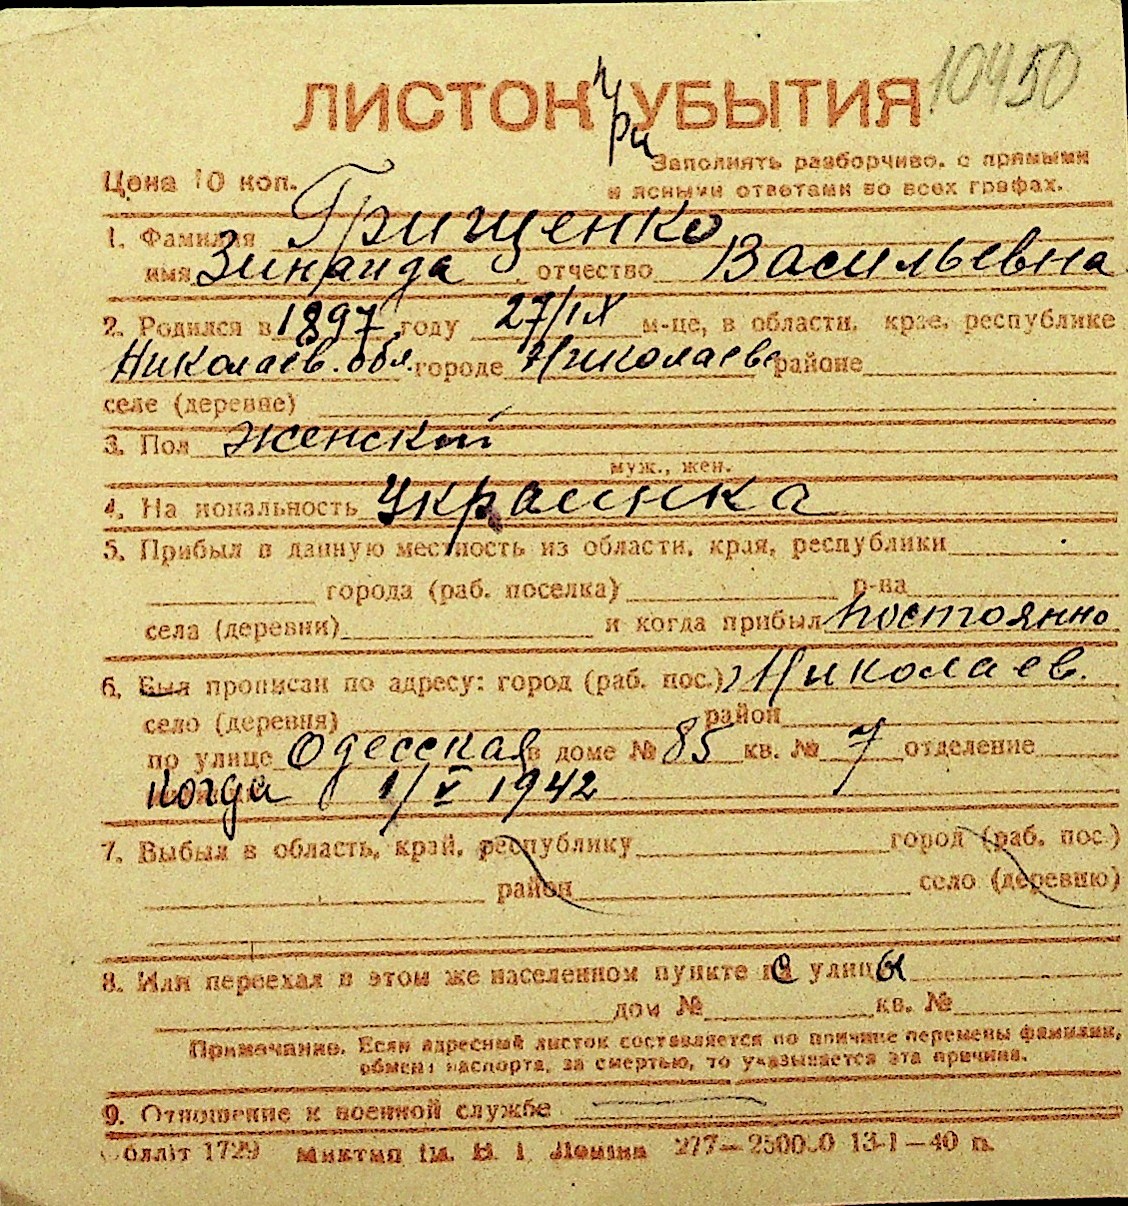 10450
ЛИСТОК при УБЫТИЯ
Заполнять разборчиво, с прямыми
и ясными ответами во всех графах.
Цена 10 коп.
1. Фамилия Грищенко
имя Зинаида отчество Васильевна
2. Родился в 1897 году 27/IX м-це, в области, крае, республике
Николаев. обл. городе Николаеве районе
селе (деревне)
3. Пол женский
муж., жен.
4. На иональность украинка
5. Прибыл в данную местность из области, края, республики
города (раб. поселка) р-на
села (деревни) и когда прибыл постоянно
6. Был прописан по адресу: город (раб. пос.) Николаев.
село (деревня) район
по улице Одесская в доме № 85 кв. № 7 отделение
когда 1/V 1942
7. Выбыл в область, край, республику город (раб. пос.)
район село (деревню)
8. Или переехал в этом же населенном пункте с улицы
дом № кв. №
Примечание. Если адресный листок составляется по причине перемены фамилии,
обмена паспорта, за смертью, то указывается эта причина.
9. Отношение к военной службе —
Обліт 1729 Миктип ім. В. І. Леніна 277—250000 13-I—40 п.